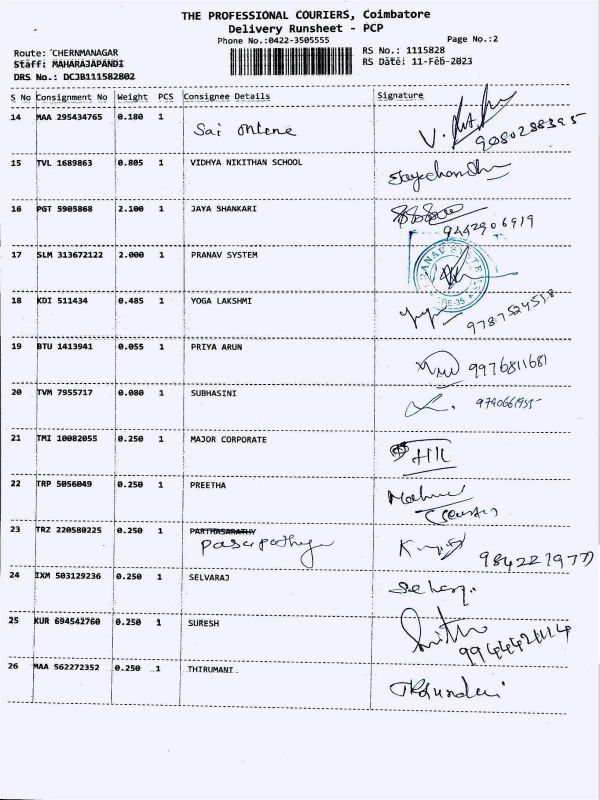 THE PROFESSIONAL COURIERS, Coimbatore
Delivery Runsheet - PCP
Phone No.:0422-3505555 Page No.:2
Route: CHERNMANAGAR RS No.: 1115828
Staff: MAHARAJAPANDI RS Date: 11-Feb-2023
DRS No.: DCJB111582802
S No Consignment No Weight PCS Consignee Details Signature
14 MAA 295434765 0.180 1 Sai 9080288395
15 TVL 1689863 0.805 1 VIDHYA NIKITHAN SCHOOL Jayachandra
16 PGT 5905868 2.100 1 JAYA SHANKARI
9442906919
17 SLM 313672122 2.000 1 PRANAV SYSTEM
18 KDI 511434 0.485 1 YOGA LAKSHMI
9787524558
19 BTU 1413941 0.055 1 PRIYA ARUN 9976811681
20 TVM 7955717 0.080 1 SUBHASINI
21 TMI 10082055 0.250 1 MAJOR CORPORATE
22 TRP 5056049 0.250 1 PREETHA
23 TRZ 220580225 0.250 1 PARTHASARATHY
24 IXM 503129236 0.250 1 SELVARAJ
25 KUR 694542760 0.250 1 SURESH
26 MAA 562272352 0.250 1 THIRUMANI